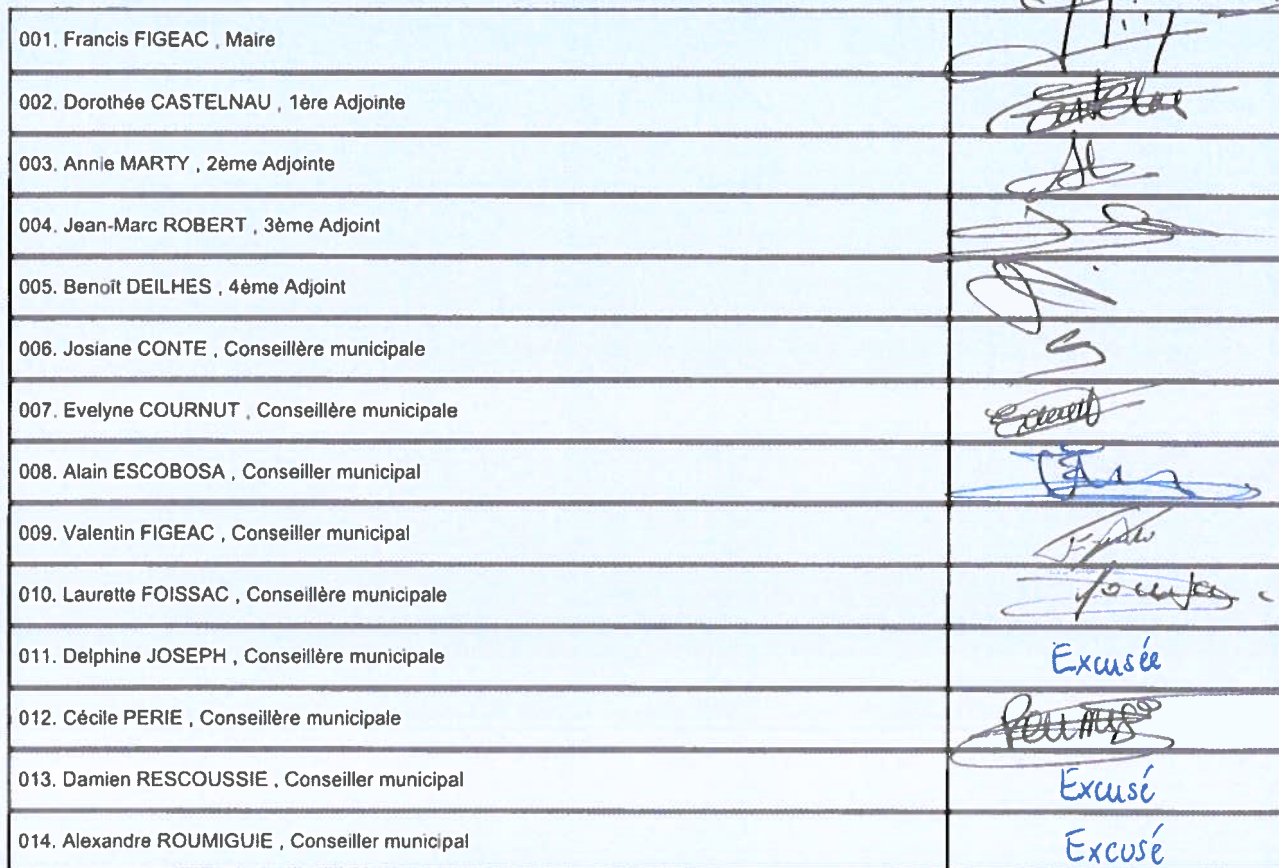 001. Francis FIGEAC , Maire
002. Dorothée CASTELNAU , 1ère Adjointe
003. Annie MARTY , 2ème Adjointe
004. Jean-Marc ROBERT , 3ème Adjoint
005. Benoît DEILHES , 4ème Adjoint
006. Josiane CONTE , Conseillère municipale
007. Evelyne COURNUT , Conseillère municipale
008. Alain ESCOBOSA , Conseiller municipal
009. Valentin FIGEAC , Conseiller municipal
010. Laurette FOISSAC , Conseillère municipale
011. Delphine JOSEPH , Conseillère municipale Excusée
012. Cécile PERIE , Conseillère municipale
013. Damien RESCOUSSIE , Conseiller municipal Excusé
014. Alexandre ROUMIGUIE , Conseiller municipal Excusé